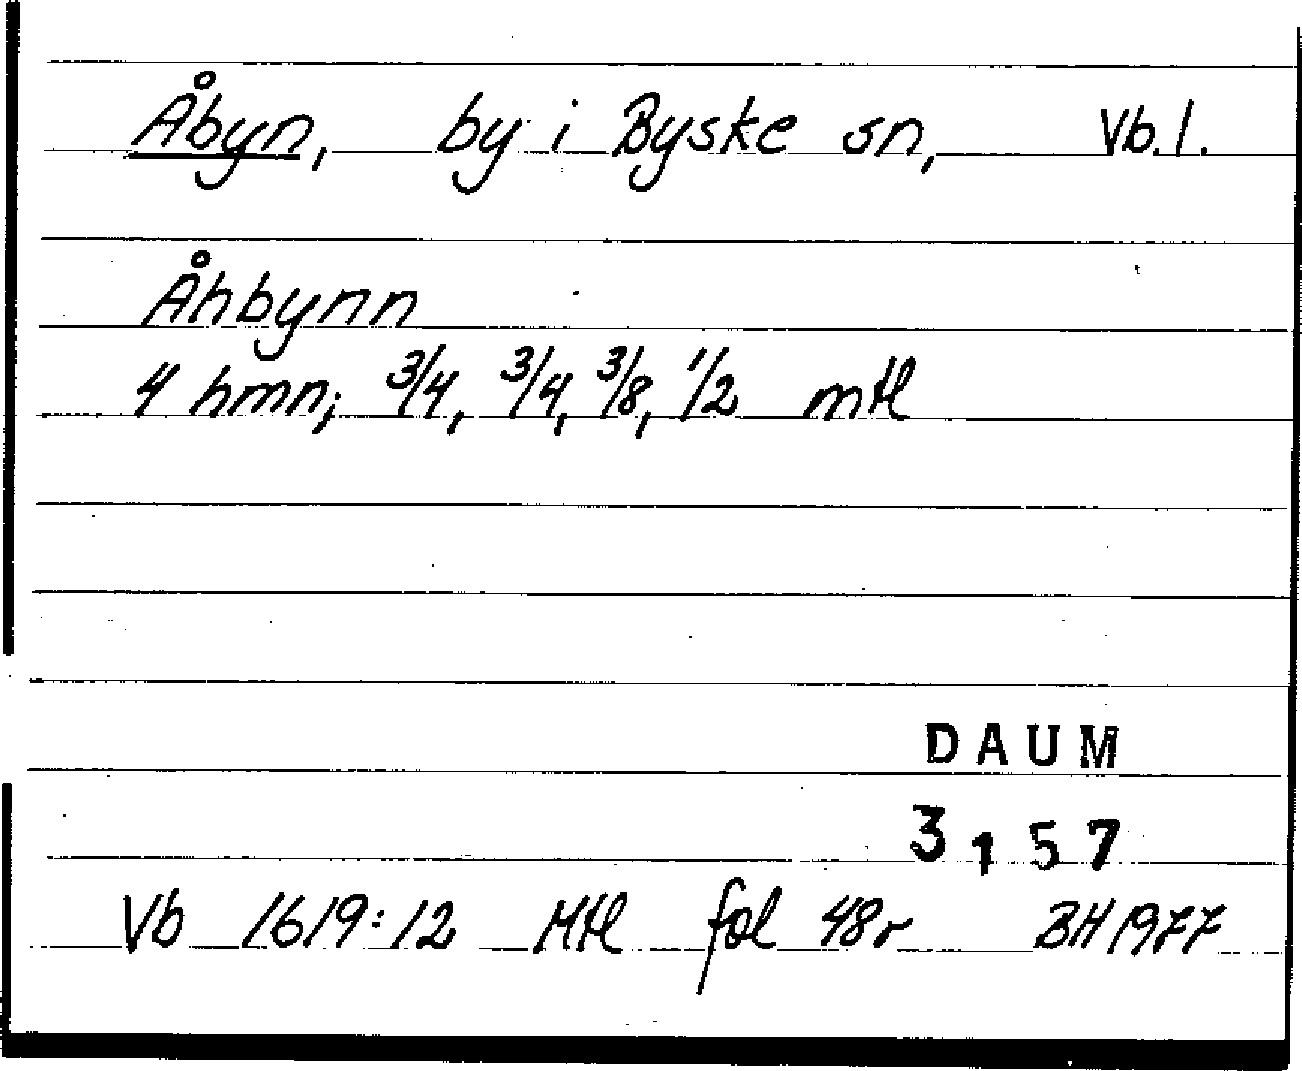 Åbyn, by i Byske sn, Vb. l.
Åhbynn
4 hmn; 3/4, 3/4, 3/8, 1/2 mtl
DAUM
3157
Vb 1619:12 Mtl fol 48r BH 1977